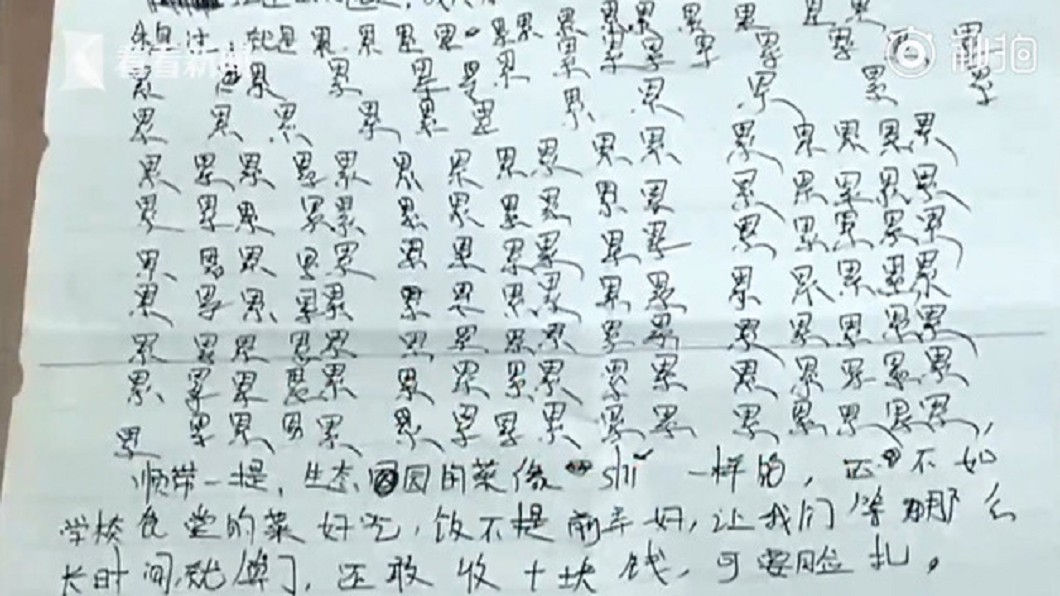 看看新闻
秒拍
就是累累累累累累累累累累累累累累
累累累累累累累累累累累累累累累
累累累累累累累累累累累
累累累累累累累累累累累累累累累累
累累累累累累累累累累累累累累累累
累累累累累累累累累累累累累累累累
累累累累累累累累累累累累累累累累
累累累累累累累累累累累累累累累累
累累累累累累累累累累累累累累累累
累累累累累累累累累累累累累累累累，
顺带一提，生态园的菜像shǐ一样的，还不如
学校食堂的菜好吃，饭不提前弄好，让我们等那么
长时间，就算了，还敢收十块钱，可要脸扎。